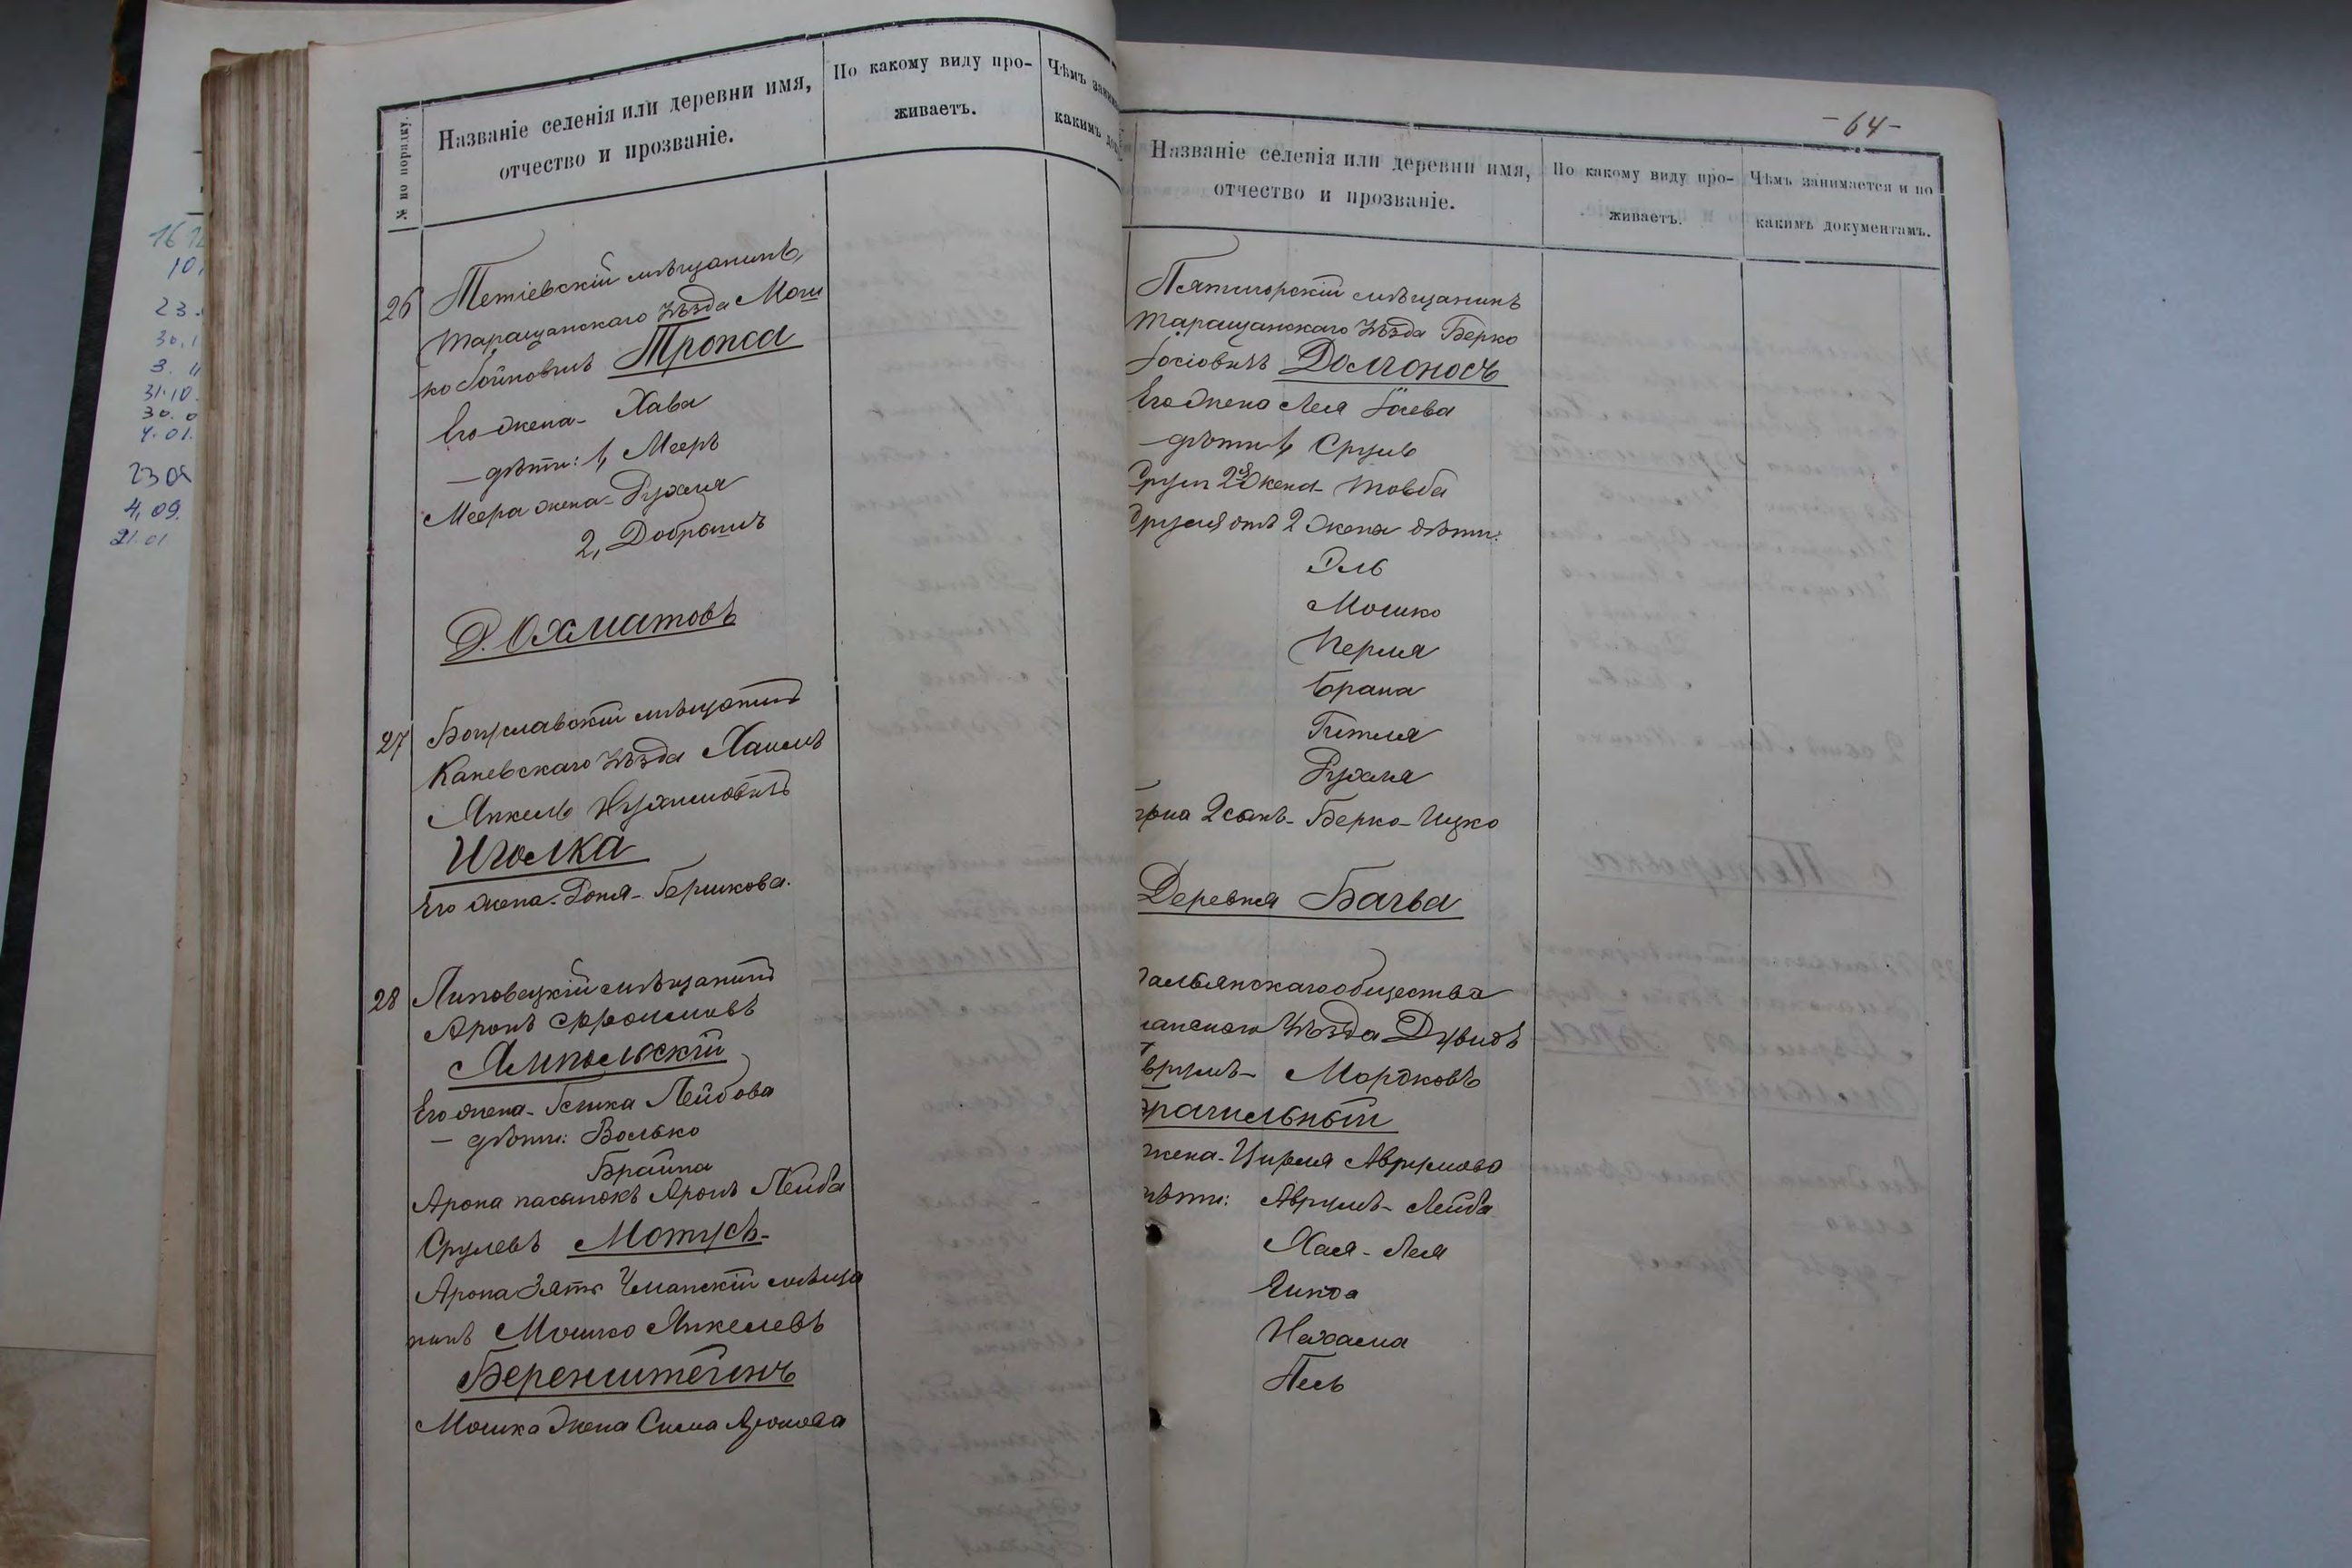 № по порядку.
Названіе селенія или деревни имя,
отчество и прозваніе.
По какому виду про-
живаетъ.
Чѣмъ
какимъ
26
Тетіевскій мѣщанинъ,
Таращанскаго уѣзда Мош
ко
Тронса
Его жена - Хава
— дѣти: 1, Мееръ
Меера жена - Рухля
2, Добрышъ
Д. Охматовъ
27
Богуславскій мѣщанинъ
Каневскаго уѣзда Хаимъ
Янкель Нухимовичъ
Иголка
Его жена - Роня - Бершкова.
28
Липовецкій мѣщанинъ
Аронъ Фроимовъ
Ямпольскій
Его жена - Лейбова
— дѣти: Волько
Брайна
Арона пасынокъ Аронъ Лейба
Срулевъ Мотусъ -
Арона Зять Уманскій мѣща
нинъ Мошко Янкелевъ
Беренштейнъ
Мошка жена Сима Аронова
16
10.
23.
30.1
3. 11
31.10.
30. 0
4. 01.
23 09
4, 09.
21. 01
- 64 -
Названіе селенія или деревни имя,
отчество и прозваніе.
По какому виду про-
живаетъ.
Чѣмъ занимается и по
какимъ документамъ.
Пятигорскій мѣщанинъ
Таращанскаго уѣзда Берко
Іосіовичъ Долгоносъ
Его жена Лея Іосева
— дѣти 1, Сруль
2я жена - Товба
Сруля отъ 2 жена дѣти:
Эль
Мошко
Перля
Брана
Гитля
Рухля
2 сынъ - Берко - Ицко
Деревня Багва
тальянскаго общества
манскаго уѣзда Дувидъ
врумъ - Мордковъ
рагильный
жена - Цирля Аврумова
дѣти: Аврумъ - Лейба
Хая - Лея
Нахама
Песь